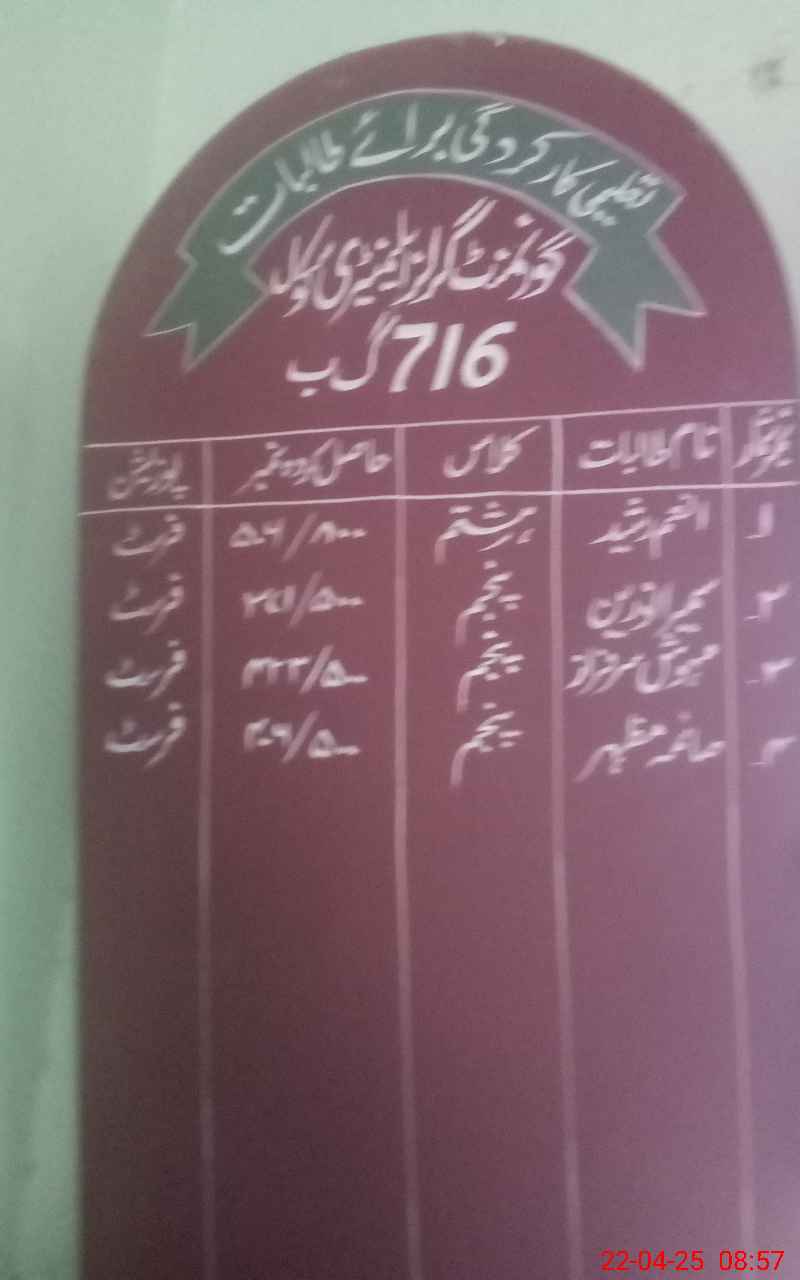 تعلیمی کارکردگی برائے طالبات
گورنمنٹ گرلز ایلیمنٹری سکول
716 گ ب
نمبر شمار نام طالبات کلاس حاصل کردہ نمبر پوزیشن
۱۔ انعم رشید ہشتم ۵۰۶/۸۰۰ فرسٹ
۲۔ پنجم فرسٹ
۳۔ مہوش سرفراز پنجم ۳۲۳/۵۰۰ فرسٹ
مظہر پنجم ۴۰۶/۵۰۰ فرسٹ
22-04-25 08:57